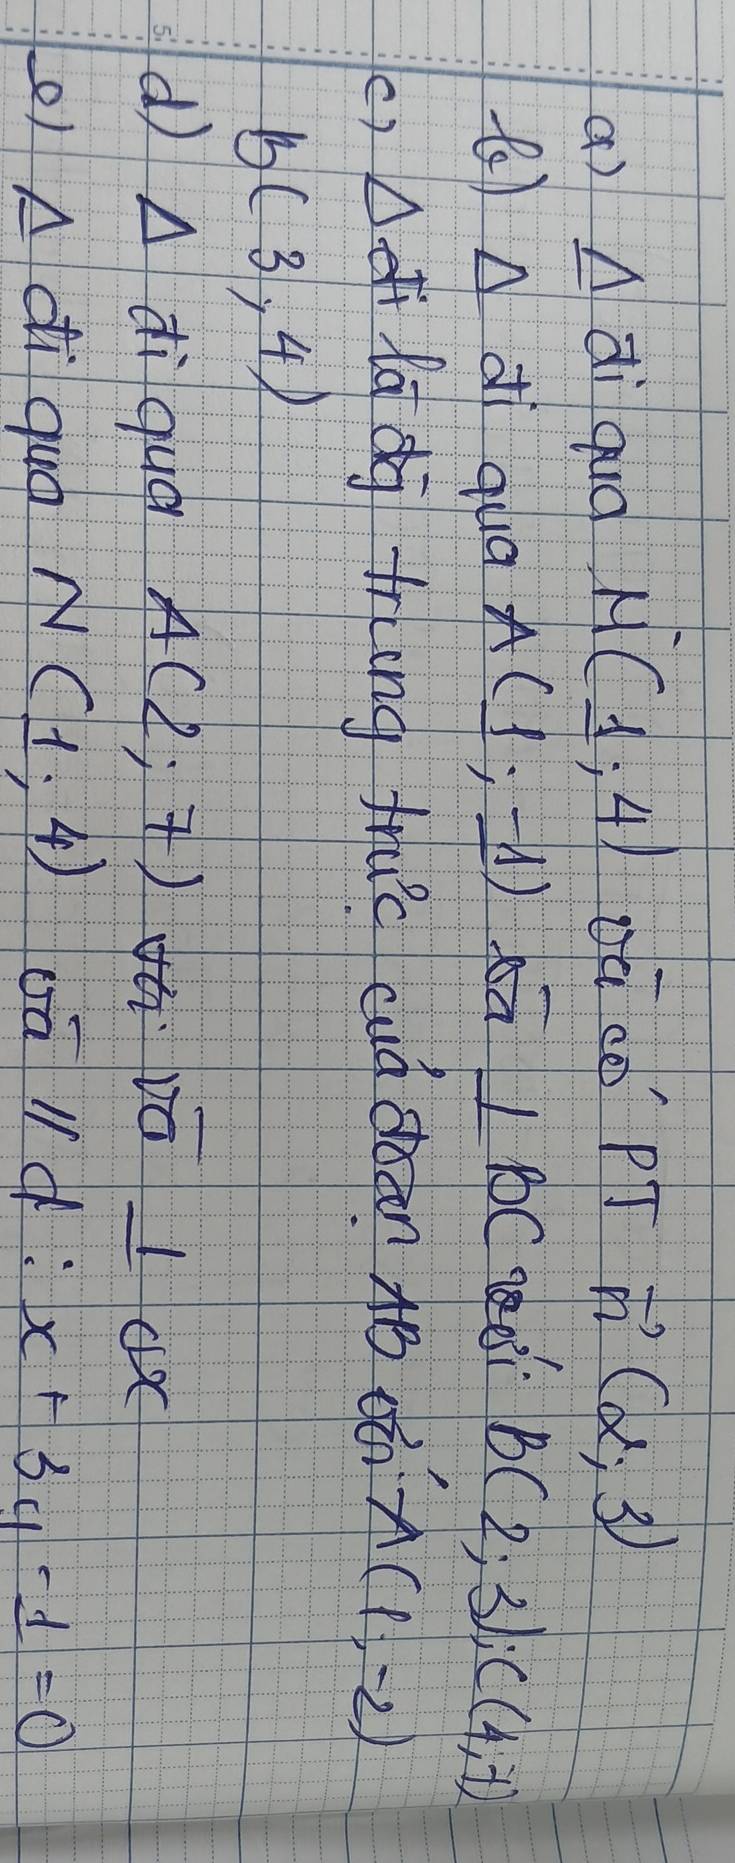 a) Δ đi qua M(1;4) và có PT n⃗ (2;3)
b) Δ đi qua A(1;-1) và ⊥ BC với B(2;3), C(4;7)
c) Δ đi là đg trung trực của đoạn AB với A(1;-2)
B(3;4)
d) Δ đi qua A(2;7) và ⊥ ox
e) Δ đi qua N(1;4) và // d: x + 3y - 1 = 0